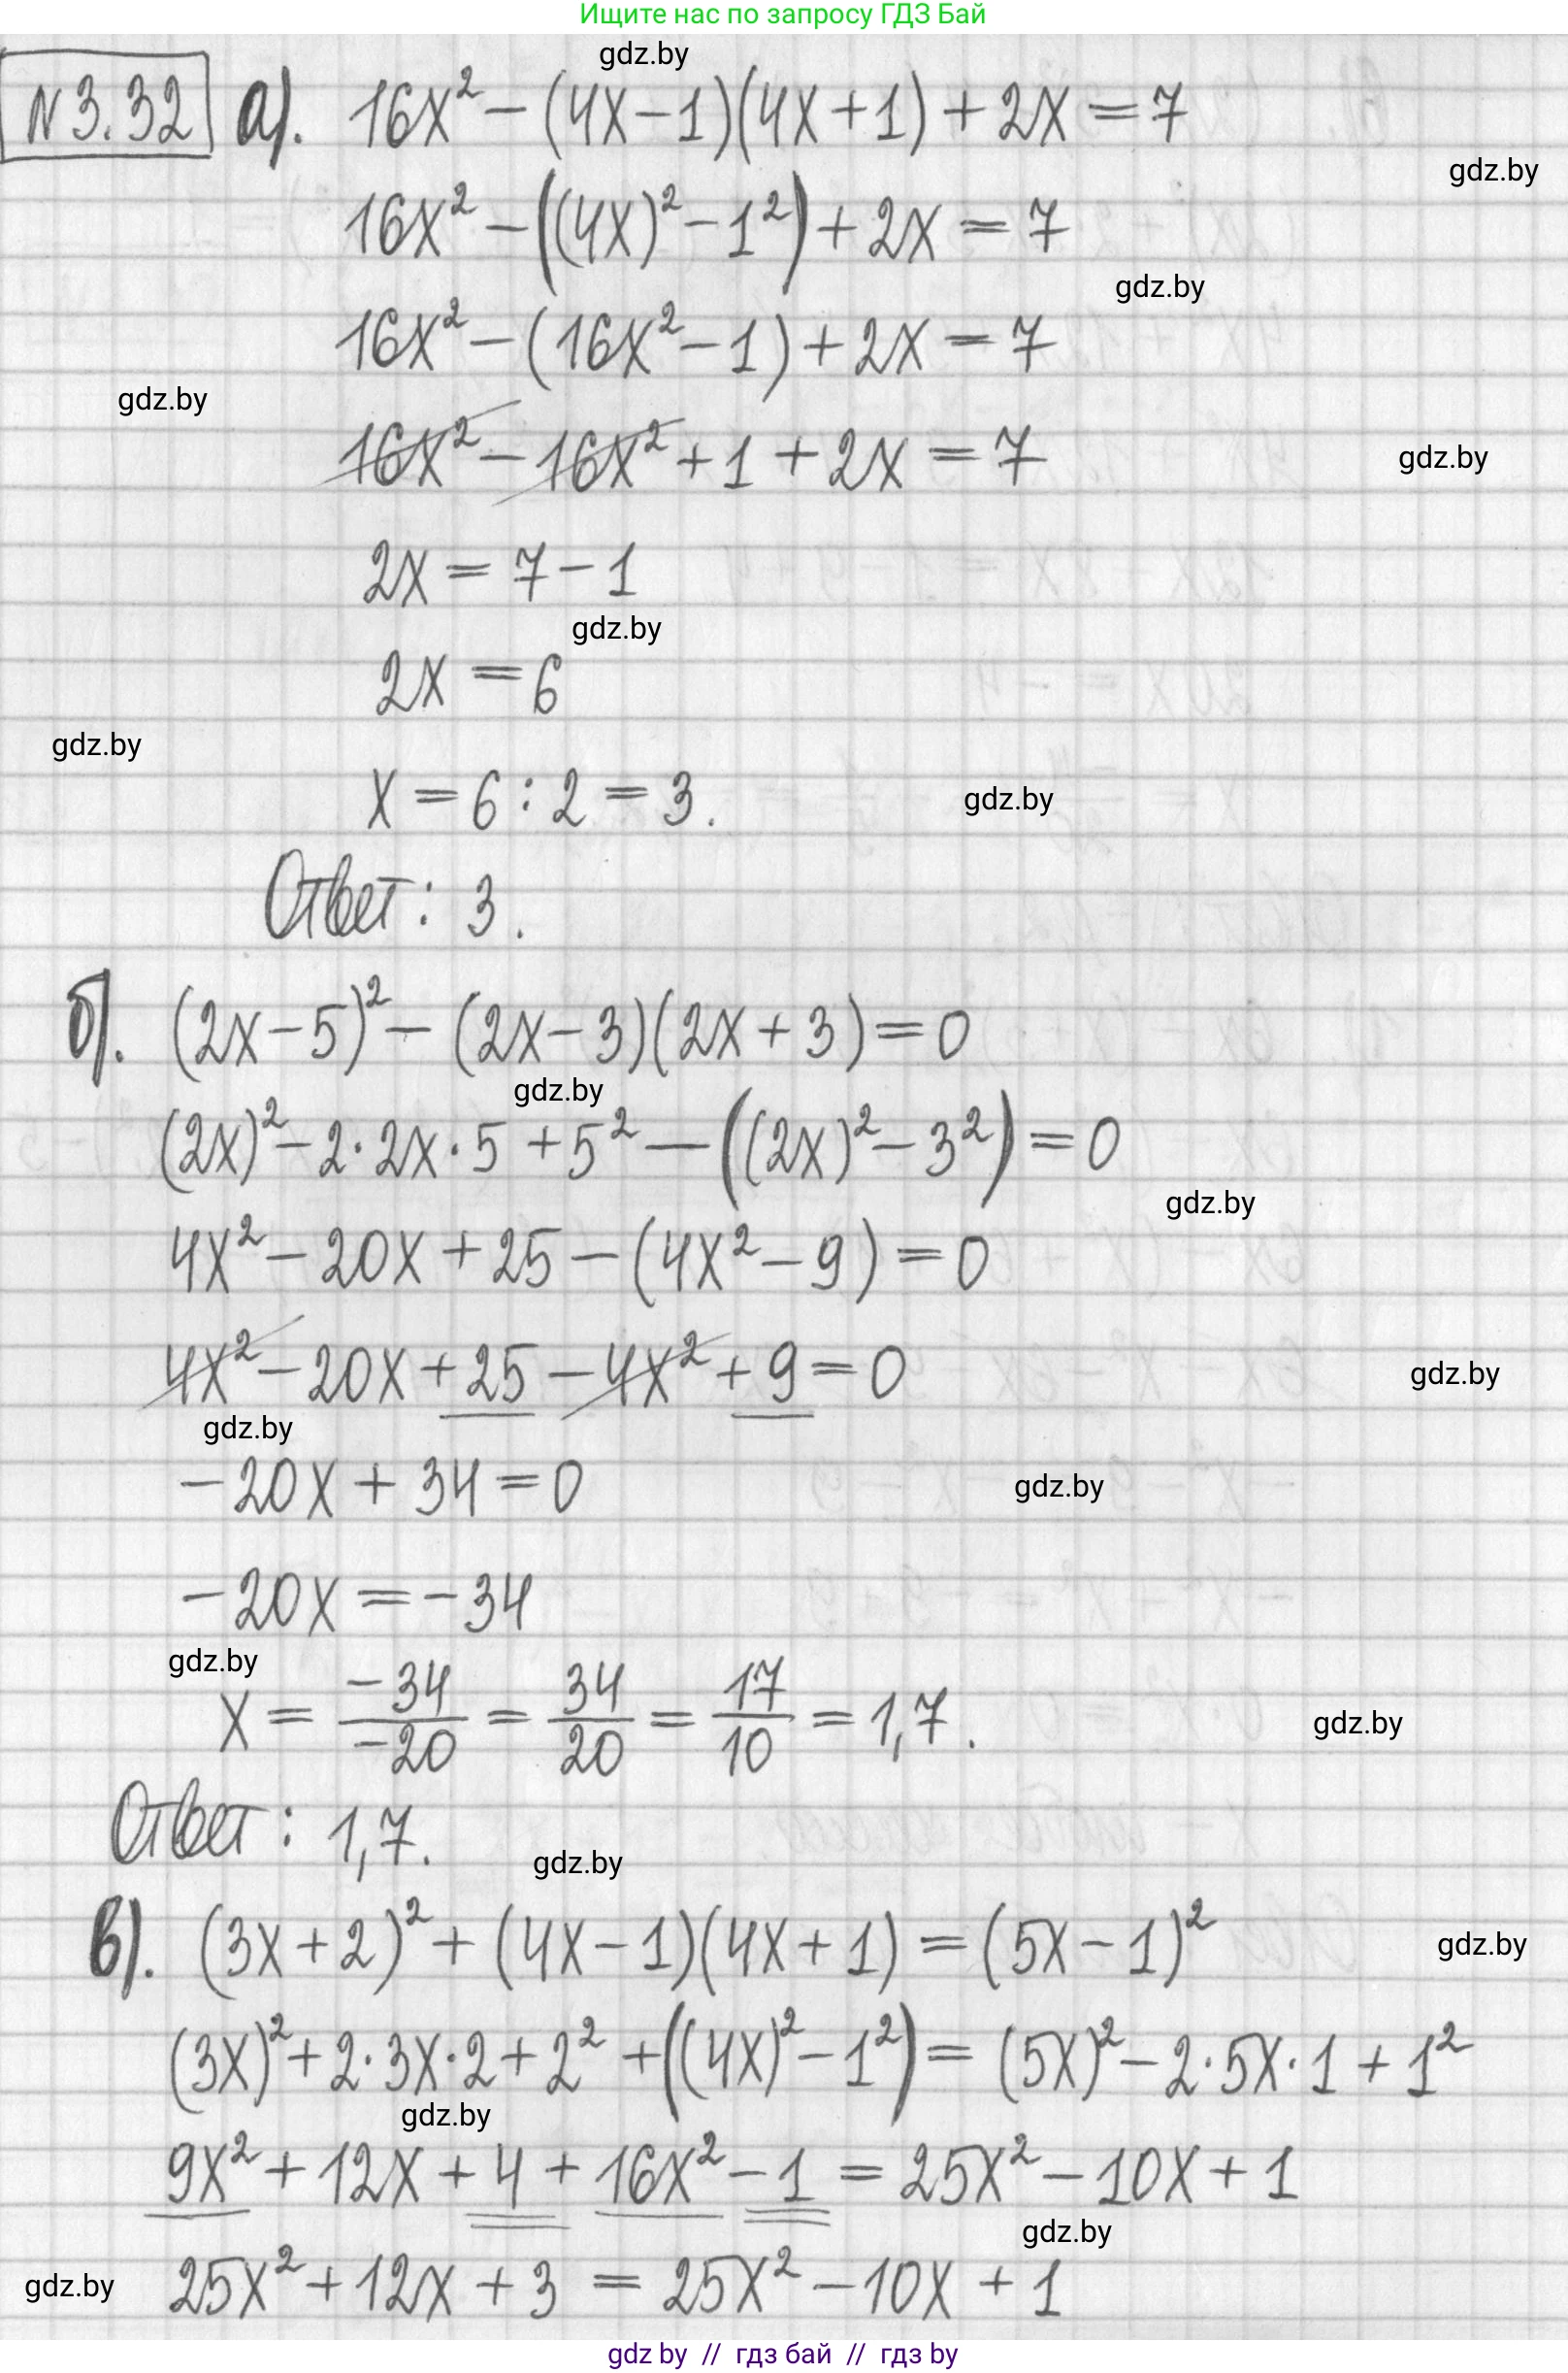 Ищите нас по запросу ГДЗ Бай
gdz.by
N 3.32 а). 16x² - (4x - 1)(4x + 1) + 2x = 7
gdz.by
16x² - ((4x)² - 1²) + 2x = 7
gdz.by
16x² - (16x² - 1) + 2x = 7
gdz.by
16x² - 16x² + 1 + 2x = 7
gdz.by
2x = 7 - 1
gdz.by
2x = 6
gdz.by
x = 6 : 2 = 3.
gdz.by
Ответ: 3.
б). (2x - 5)² - (2x - 3)(2x + 3) = 0
gdz.by
(2x)² - 2·2x·5 + 5² - ((2x)² - 3²) = 0
gdz.by
4x² - 20x + 25 - (4x² - 9) = 0
4x² - 20x + 25 - 4x² + 9 = 0
gdz.by
gdz.by
-20x + 34 = 0
gdz.by
-20x = -34
gdz.by
x = -34/-20 = 34/20 = 17/10 = 1,7.
gdz.by
Ответ: 1,7.
gdz.by
в). (3x + 2)² + (4x - 1)(4x + 1) = (5x - 1)²
gdz.by
(3x)² + 2·3x·2 + 2² + ((4x)² - 1²) = (5x)² - 2·5x·1 + 1²
gdz.by
9x² + 12x + 4 + 16x² - 1 = 25x² - 10x + 1
gdz.by
gdz.by
25x² + 12x + 3 = 25x² - 10x + 1
gdz.by // гдз бай // гдз by